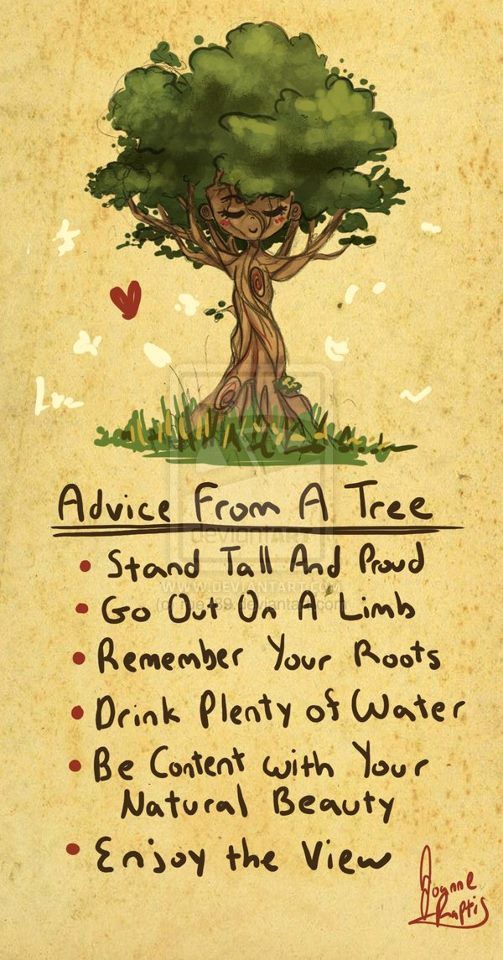 Advice From A Tree
deviantART
• Stand Tall And Proud
WWW.DEVIANTART.COM
• Go Out On A Limb
• Remember Your Roots
• Drink Plenty of Water
• Be Content with Your
Natural Beauty
• Enjoy the View
Joanne
Raftis